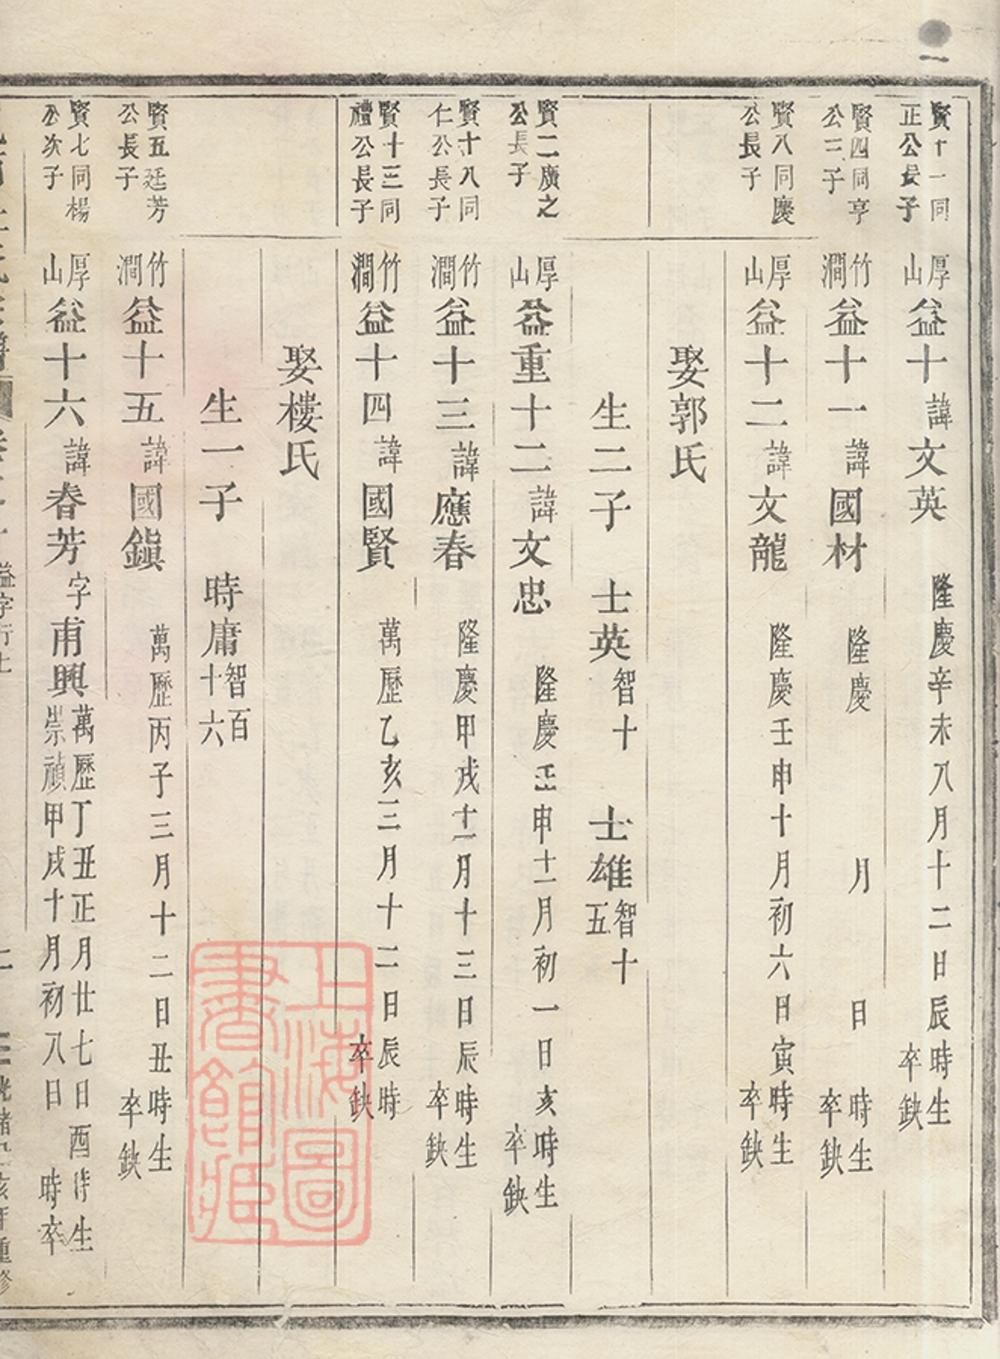 賢十一同正公長子 厚山益十諱文英 隆慶辛未八月十二日辰時生卒缺
賢四同亨公三子 竹澗益十一諱國材 隆慶 月 日 時生卒缺
賢八同慶公長子 厚山益十二諱文龍 隆慶壬申十月初六日寅時生卒缺
娶郭氏
生二子 士英智十 士雄智十五
賢二廣之公長子 厚山益重十二諱文忠 隆慶壬申十一月初一日亥時生卒缺
賢十八同仁公長子 竹澗益十三諱應春 隆慶甲戌十二月十三日辰時生卒缺
賢十三同禮公長子 竹澗益十四諱國賢 萬歷乙亥三月十二日辰時卒缺
娶樓氏
生一子 時庸智百十六
賢五廷芳公長子 竹澗益十五諱國鎭 萬歷丙子三月十二日丑時生卒缺
賢七同楊公次子 厚山益十六諱春芳字甫興萬歷丁丑正月廿七日酉時生崇禎甲戌十月初八日 時卒
益字行上
上海圖書館藏